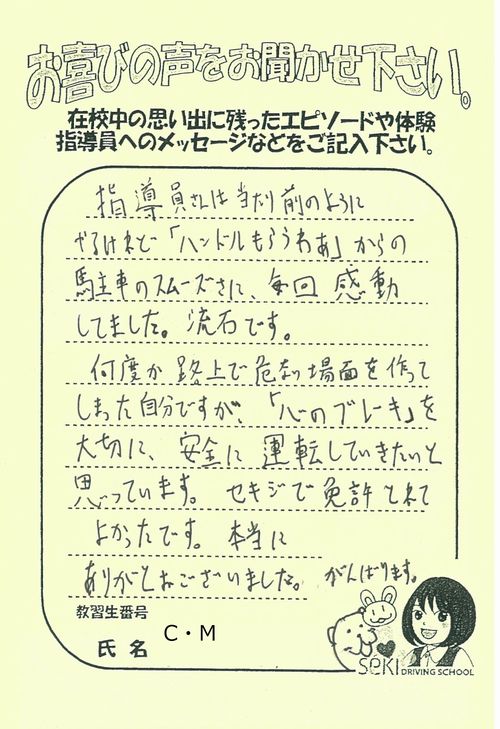 お喜びの声をお聞かせ下さい。
在校中の思い出に残ったエピソードや体験
指導員へのメッセージなどをご記入下さい。
指導員さんは当たり前のように
やるけれど「ハンドルもらうわぁ」からの
駐車のスムーズさに、毎回感動
してました。流石です。
何度か路上で危ない場面を作って
しまった自分ですが、「心のブレーキ」を
大切に、安全に運転していきたいと
思っています。セキジで免許とれて
よかったです。本当に
ありがとおございました。がんばります。
教習生番号
氏名 C・M
SEKI DRIVING SCHOOL